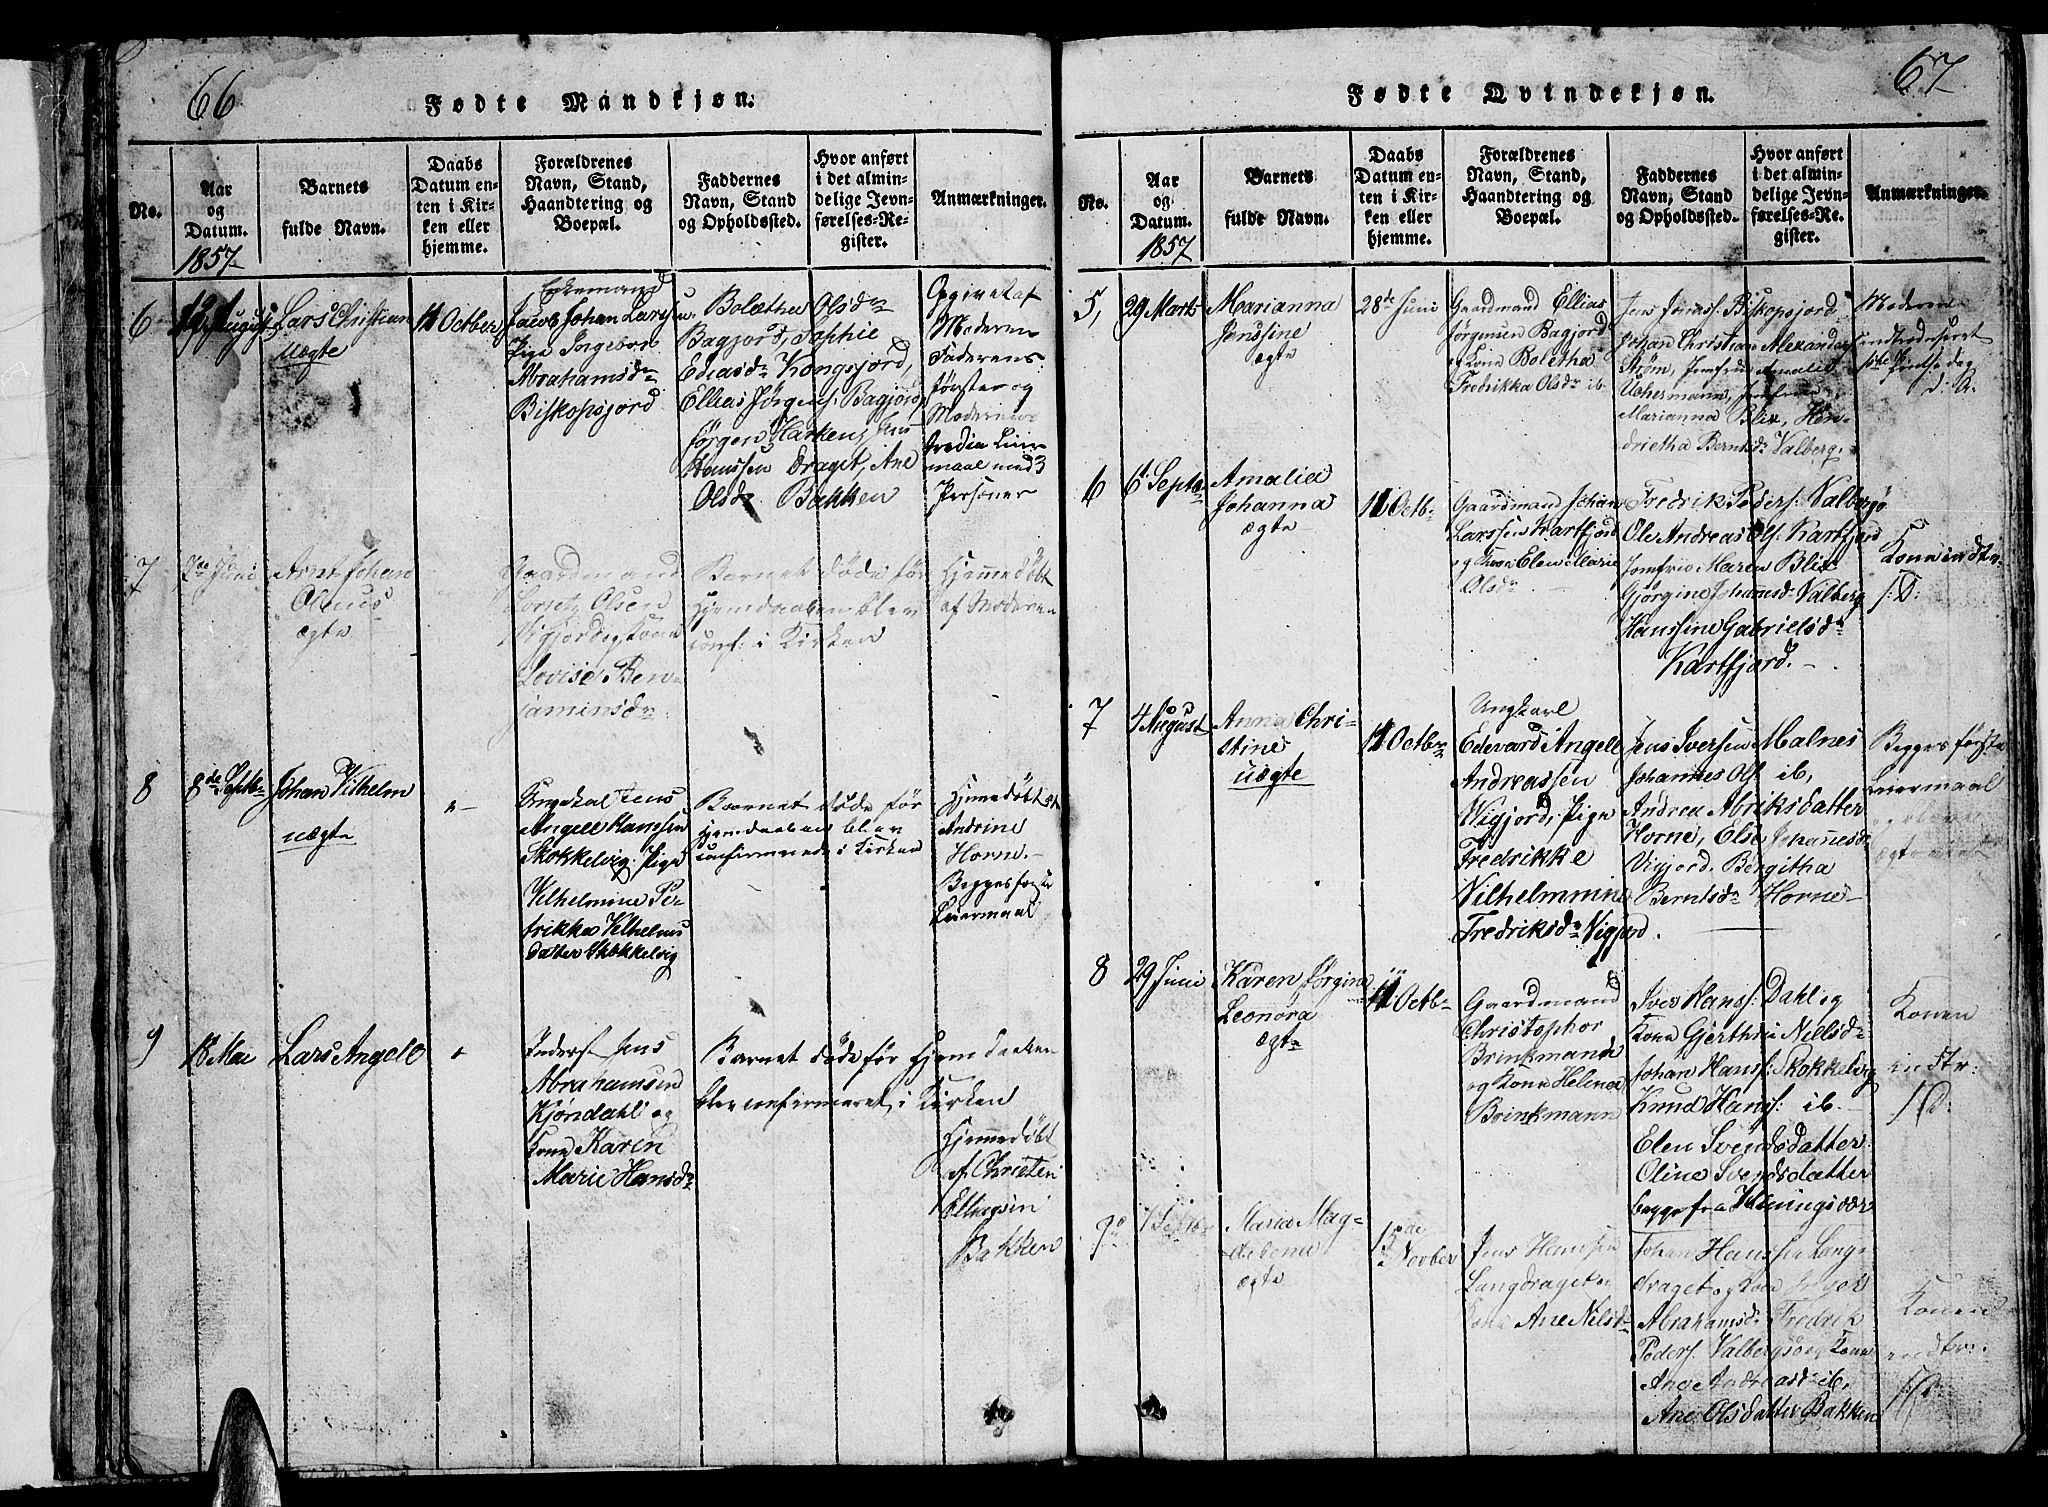 66
Fødte Mandkjøn.
No.
Aar
og
Datum.
1857
Barnets
fulde Navn.
Daabs
Datum en-
ten i Kir-
ken eller
hjemme.
Forældrenes
Navn, Stand,
Haandtering og
Boepæl.
Faddernes
Navn, Stand
og Opholdssted.
Hvor anført
i det almin-
delige Jevn-
førelses-Re-
gister.
Anmærkninger.
6
August
Lars Christian
uægte
11 Octber
Enkemand
Jacob Johan Larssen.
Pige Ingebor
Abrahamsdr
Biskopsjord
Bolætha Olsdr
Bagjord, Sophie
Ediasdr Kongsjord,
Ellias Jørgens. Bagjord
Jørgen Harkens, Jens
Hanssen Draget, Ane
Olsdr Bakken
Opgivet af
Moderen
Faderens
første og
Moderens
tredie Leier-
maal med 3
Personer
7
Juni
Arnt Johan
Olaus
ægte
Gaardmand
Lorsetz Olsen
Vigjord og Kone
Lovise Ben-
jaminsdr
Barnet døde før
Hjemdaaben blev
conf: i Kirken
Hjemmedøbt
af Moderen
8
8de Septbr
Johan Vilhelm
uægte
"
Ungkal Jens
Angell Hanssen
Skokkelvig. Pige
Vilhelmine Pe-
trikke Vilhelms
datter Skokkelvig
Barnet døde før
Hjemdaaben blev
confirmerede i Kirken
Hjemedøbt af
Andrine
Horne.
Begges første
Leiermaal
9
18 Mai
Lars Angell
"
Inders. Jens
Abrahamsen
Kjøndahl og
Kone Karen
Marie Hansdr
Barnet døde før Hjemdaaben
blev confirmeret i Kirken
Hjemmedøbt
af Christen
Elliassen
Bakken
67
Fødte Qvindekjøn.
No.
Aar
og
Datum.
1857
Barnets
fulde Navn.
Daabs
Datum en-
ten i Kir-
ken eller
hjemme.
Forældrenes
Navn, Stand,
Haandtering og
Boepæl.
Faddernes
Navn, Stand
og Opholdssted.
Hvor anført
i det almin-
delige Jevn-
førelses-Re-
gister.
Anmærkninger.
5,
29 Marts
Marianna
Jenssine
ægte
28de Juni
Gaardmand Ellias
Jørgensen Bagjord
og Kone Boletha
Fredrikka Olsdr ib.
Jens Jonass. Biskopsjord,
Johan Christian Alexander
Strøm, Jomfru Amalia
Uchermann, Jomfru
Marianna Blix, Hen-
drietha Berntsdr Valberg.
Moderen
D. A.
6
6 Septbr
Amalia
Johanna
ægte
11 Octbr
Gaardmand Johan
Larssen Kartfjord
og Kone Elen Marie
Olsdr
Fredrik Peders. Valbergø
Ole Andreas Ols. Kartfjord
Jomfru Maren Blix
Gjørgine Johannsdr Valberg
Hanssine Gabrielsdr
Kartfjord.
Kone indtr.
S. D:
7
4 August
Anna Chri-
stine
uægte
11 Octbr
Ungkarl
Edevard Angell
Andreassen
Vigjord, Pige
Fredrikke
Vilhelmmine
Fredriksdr Vigjord.
Jens Iversen Malnes
Johannes Ols. ib,
Andrea Abriksdatter
Horne, Else Johannesdr
Vigjord. Bergitha
Berntsdr Horne
Begges første
Leiermaal
8
29 Juni
Karen Jørgine
Leonora
ægte
11 Octbr
Gaardmand
Christophor
Brinkmann
og Kone Helena
Brinkmann
Iver Hanss. Dahl og
Kone Gjerthru Nielsdr
Johan Hans. Skokkelvig
Knud Hans: ib.
Elen Svendsdatter
Oline Svendsdatter
begge fra Henningsvær
Konen
indtr:
S D:
9
7 Septbr
Maria Mag-
dalena
ægte
15de
Novber
Jens Hanssen
Langdraget og
Kone Ane Nilsdr
Johan Hanssen Lang-
draget og Kone Inger
Abrahamsdr Fredrik
Peders. Valbergsø og Kone
Ane Andreasdr ib,
Ane Olsdatter Bakken
Konen
indtr:
S D: